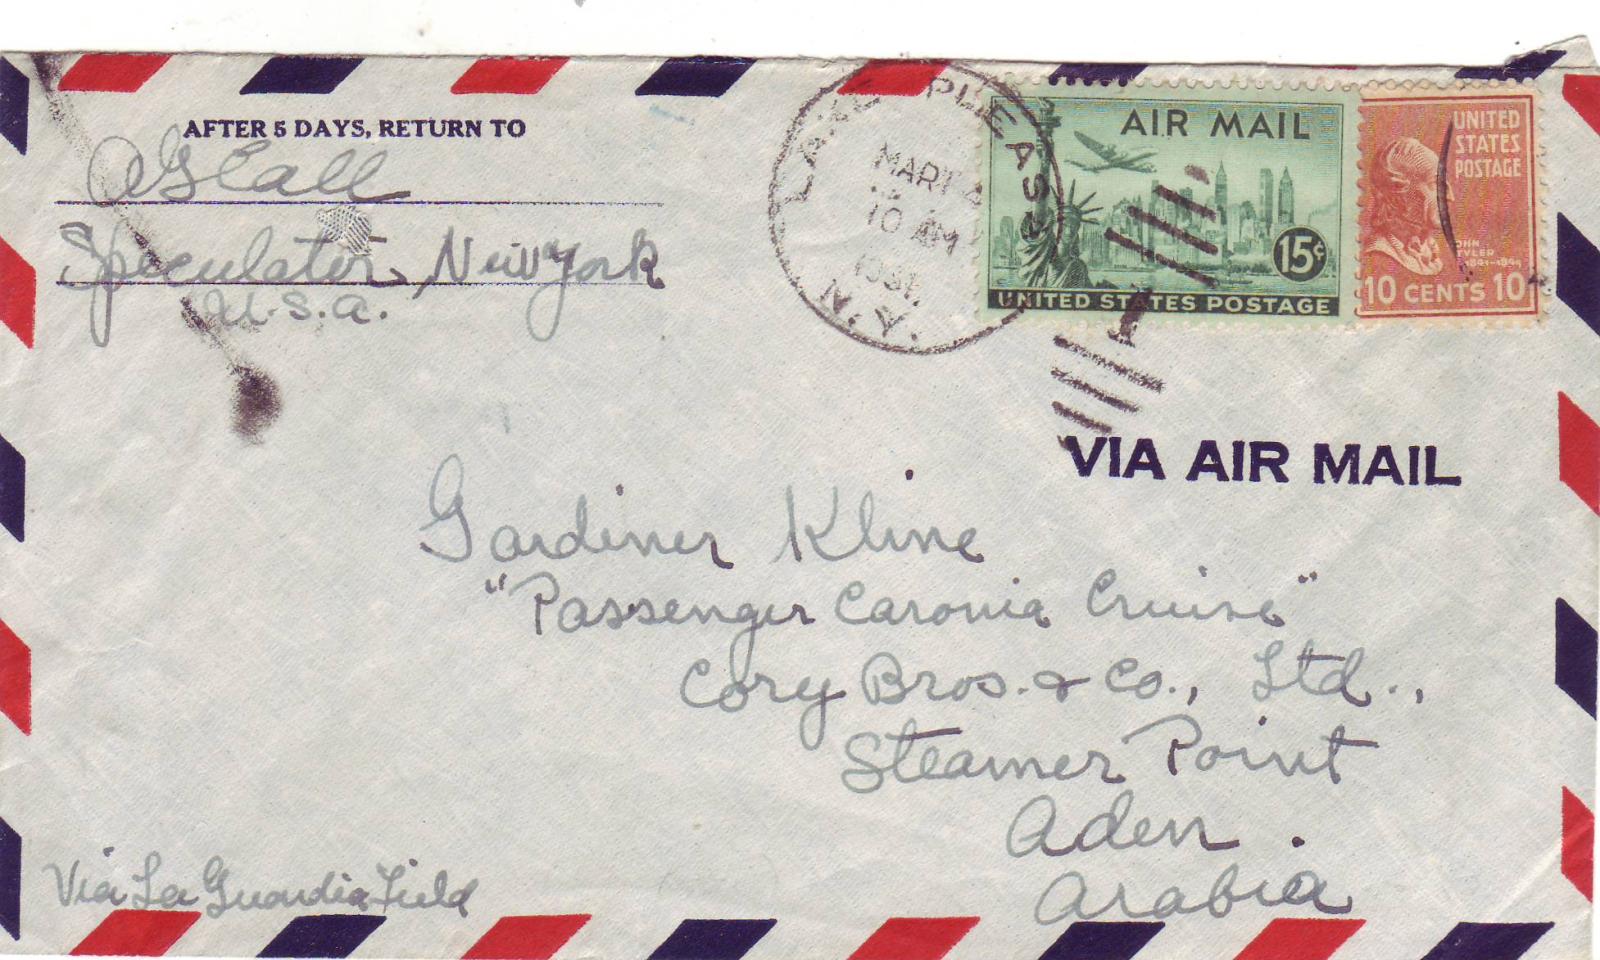 AFTER 5 DAYS, RETURN TO
Speculator, New York
U.S.A.
LAKE PLEASANT
N.Y.
MAR 14
10 AM
1951
AIR MAIL
15¢
UNITED STATES POSTAGE
UNITED
STATES
POSTAGE
JOHN
TYLER
1841-1845
10 CENTS 10
VIA AIR MAIL
Gardiner Kline
"Passenger Caronia Cruise"
Cory Bros. & Co., Ltd.,
Steamer Point
Aden.
Arabia
Via La Guardia Field